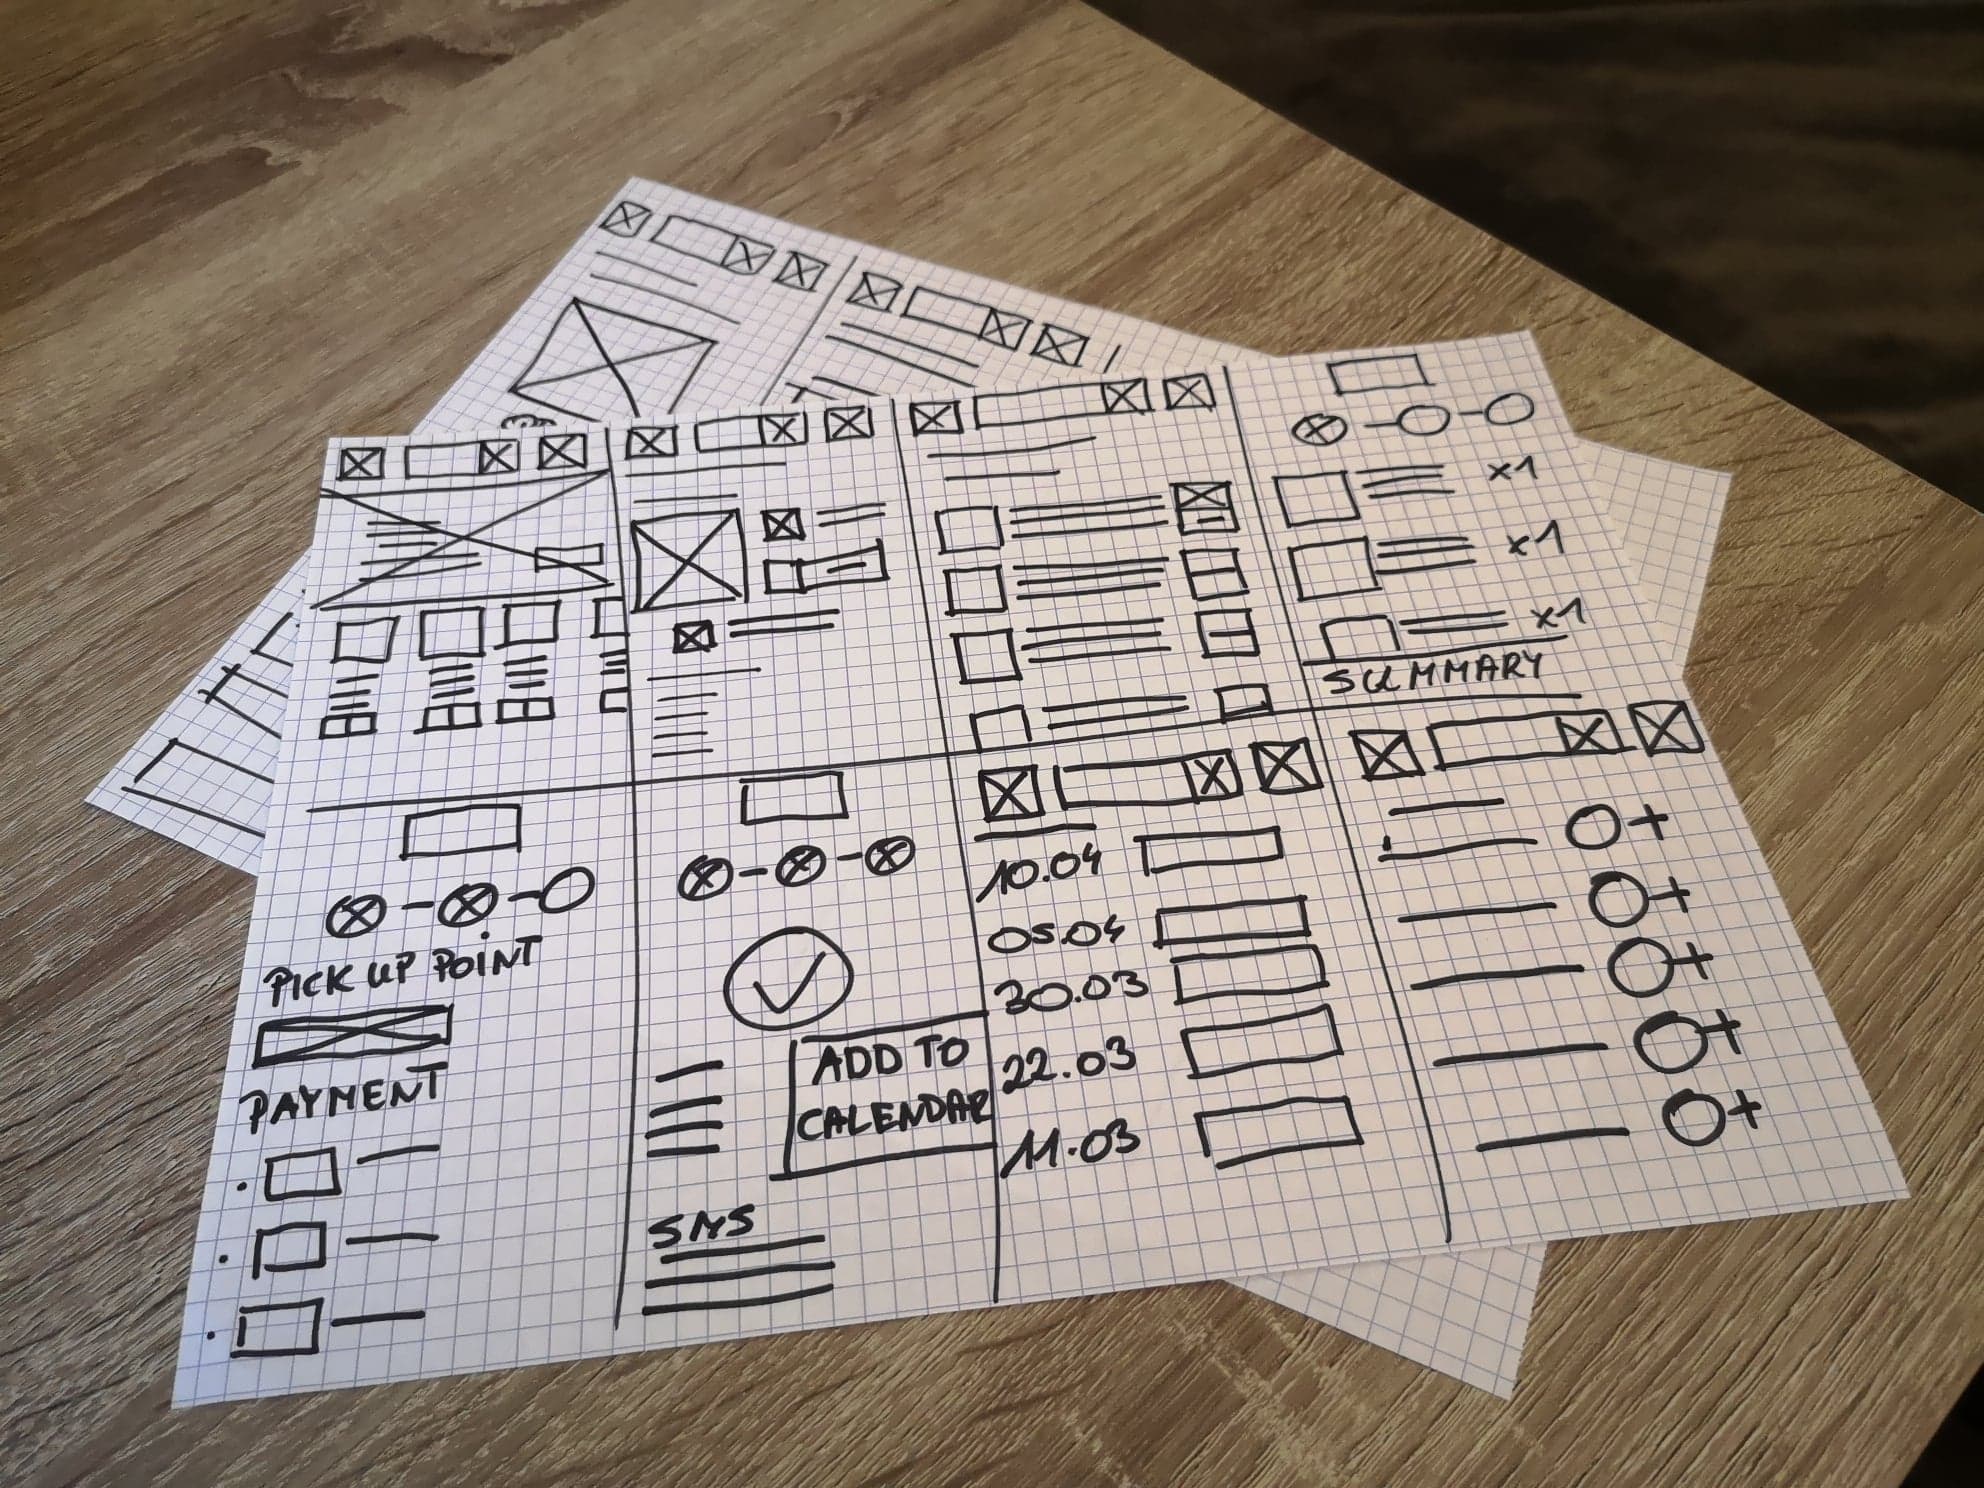 x1
x1
x1
SUMMARY
PICK UP POINT
PAYMENT
ADD TO
CALENDAR
SMS
10.04
05.04
30.03
22.03
11.03